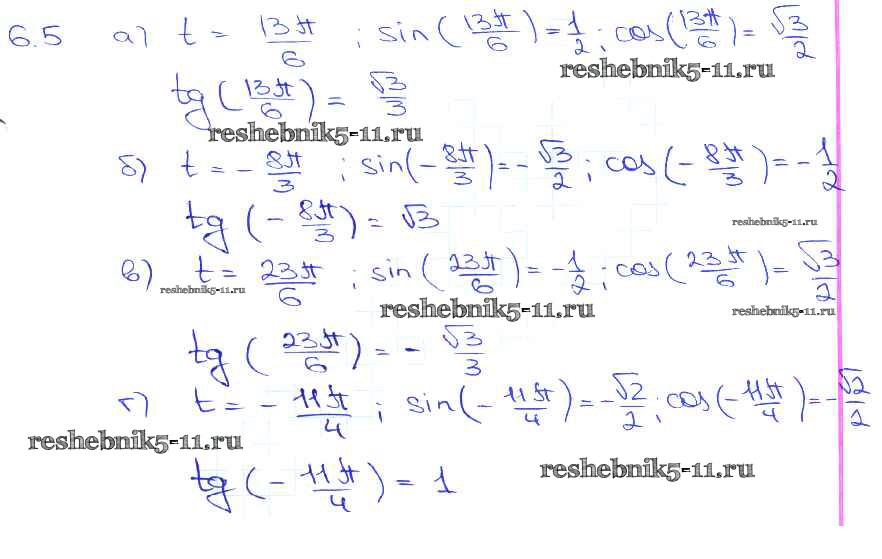 6.5 а) t = 13π/6 ; sin(13π/6) = 1/2 ; cos(13π/6) = √3/2
reshebnik5-11.ru
tg(13π/6) = √3/3
reshebnik5-11.ru
б) t = - 8π/3 ; sin(- 8π/3) = - √3/2 ; cos(- 8π/3) = - 1/2
tg(- 8π/3) = √3
reshebnik5-11.ru
в) t = 23π/6 ; sin(23π/6) = - 1/2 ; cos(23π/6) = √3/2
reshebnik5-11.ru
reshebnik5-11.ru
reshebnik5-11.ru
tg(23π/6) = - √3/3
г) t = - 11π/4 ; sin(- 11π/4) = - √2/2 ; cos(- 11π/4) = - √2/2
reshebnik5-11.ru
tg(- 11π/4) = 1
reshebnik5-11.ru